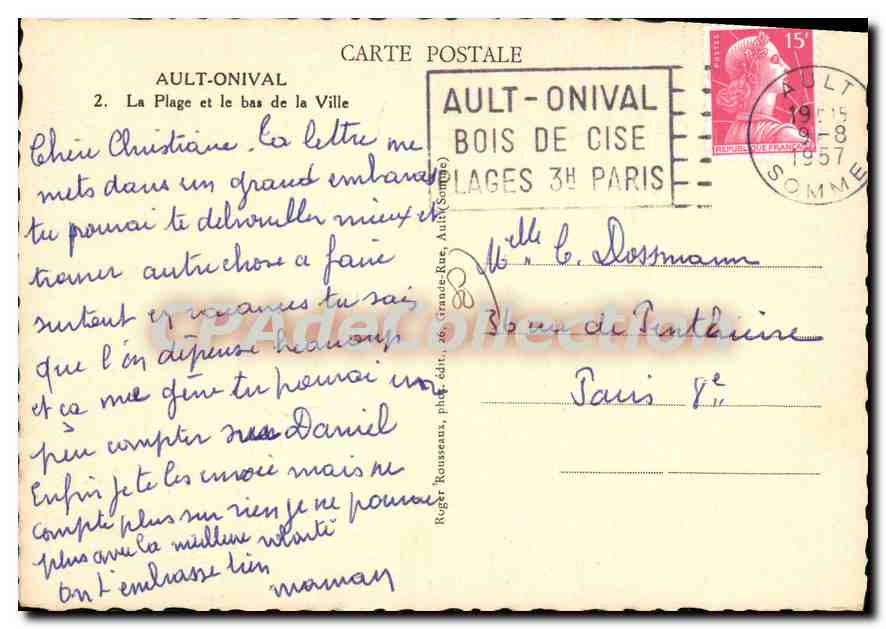 CARTE POSTALE
AULT-ONIVAL
2. La Plage et le bas de la Ville
Chère Christiane. ta lettre me
mets dans un grand embaras
tu pourrai te debrouiller mieux et
trouver autre chose a faire
surtout en vacances tu sais
que l'on dépense beaucoup
et ça me gêne tu pourrai un
peu compter sur Daniel
Enfin je te les envoie mais ne
compte plus sur rien je ne pourrai
plus avec la meilleure volonté
On t'embrasse bien
maman
Roger Rousseaux, phot. édit., 26, Grande-Rue, Ault (Somme)
AULT-ONIVAL
BOIS DE CISE
PLAGES 3H PARIS
POSTES
15F
REPUBLIQUE FRANÇAISE
AULT
9-8
1957
SOMME
Melle C. Dossmann
36 rue de Penthièvre
Paris 8e
CPAdeCollection